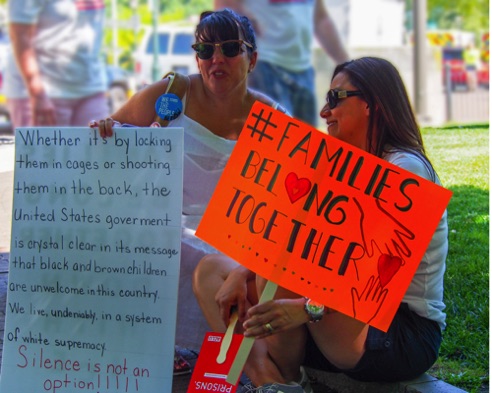 Whether it's by locking
them in cages or shooting
them in the back, the
United States goverment
is crystal clear in its message
that black and brown children
are unwelcome in this country.
We live, undeniably, in a system
of white supremacy.
Silence is not an
option!!!!!
#FAMILIES
BELONG
TOGETHER
PRISONS.